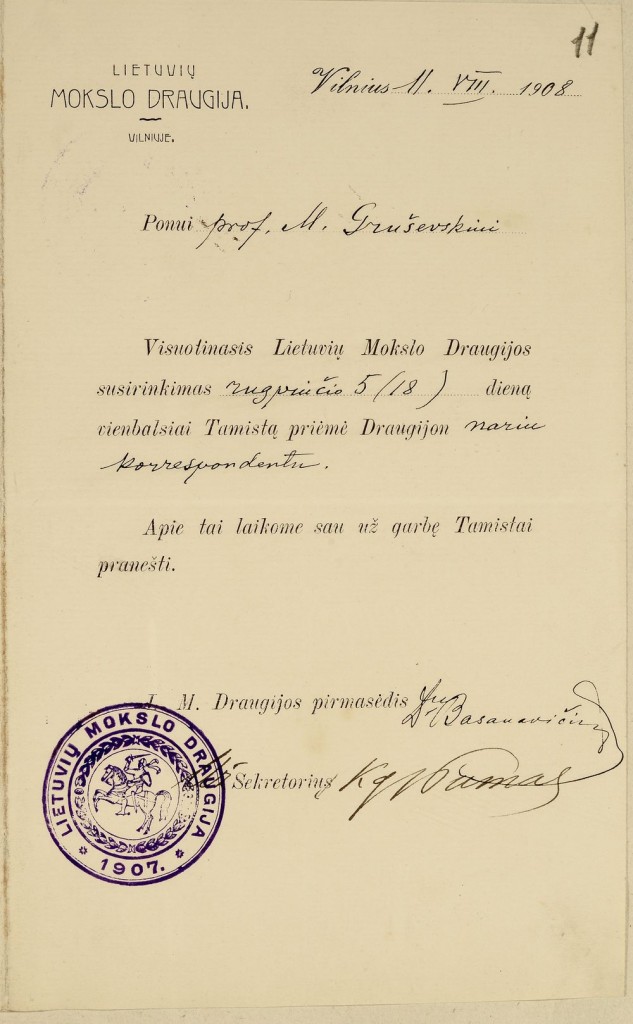 11
LIETUVIŲ
MOKSLO DRAUGIJA.
VILNIUJE.
Vilnius 11. VIII. 1908
Ponui prof. M. Gruševskiui
Visuotinasis Lietuvių Mokslo Draugijos
susirinkimas rugpiučio 5 (18) dieną
vienbalsiai Tamistą priėmė Draugijon nariu
korrespondentu.
Apie tai laikome sau už garbę Tamistai
pranešti.
L. M. Draugijos pirmasėdis Dr Basanavičius
Sekretorius
LIETUVIŲ MOKSLO DRAUGIJA
1907.